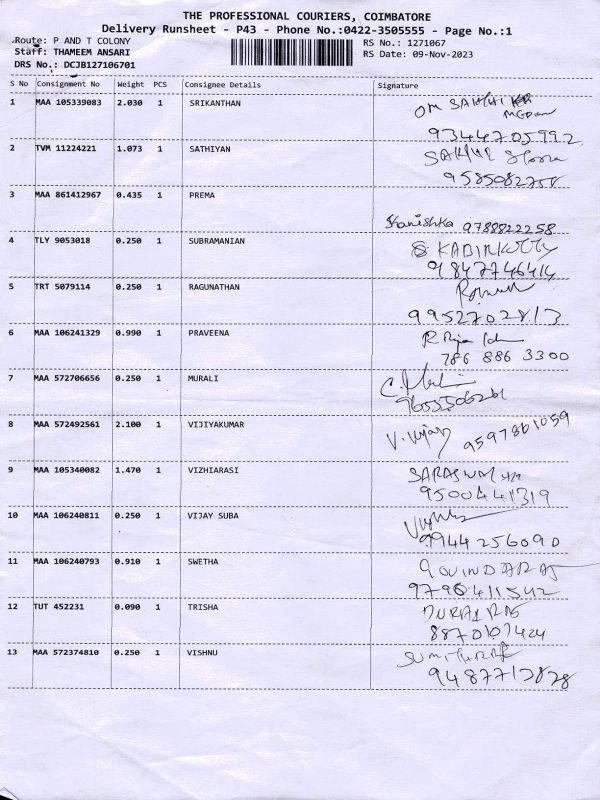 THE PROFESSIONAL COURIERS, COIMBATORE
Delivery Runsheet - P43 - Phone No.:0422-3505555 - Page No.:1
Route: P AND T COLONY RS No.: 1271067
Staff: THAMEEM ANSARI RS Date: 09-Nov-2023
DRS No.: DCJB127106701
S No Consignment No Weight PCS Consignee Details Signature
1 MAA 105339083 2.030 1 SRIKANTHAN OM SAKHI
9344705992
2 TVM 11224221 1.073 1 SATHIYAN
9585082758
3 MAA 861412967 0.435 1 PREMA
Shanishka 9788822258
4 TLY 9053018 0.250 1 SUBRAMANIAN
9847746414
5 TRT 5079114 0.250 1 RAGUNATHAN
9952702813
6 MAA 106241329 0.990 1 PRAVEENA
786 886 3300
7 MAA 572706656 0.250 1 MURALI
8 MAA 572492561 2.100 1 VIJIYAKUMAR V. Vijay 9597861059
9 MAA 105340082 1.470 1 VIZHIARASI
9500441319
10 MAA 106240811 0.250 1 VIJAY SUBA
9944256090
11 MAA 106240793 0.910 1 SWETHA GOVINDARAJ
9790411542
12 TUT 452231 0.090 1 TRISHA DURAI RAJ
8870107424
13 MAA 572374810 0.250 1 VISHNU
9487713828